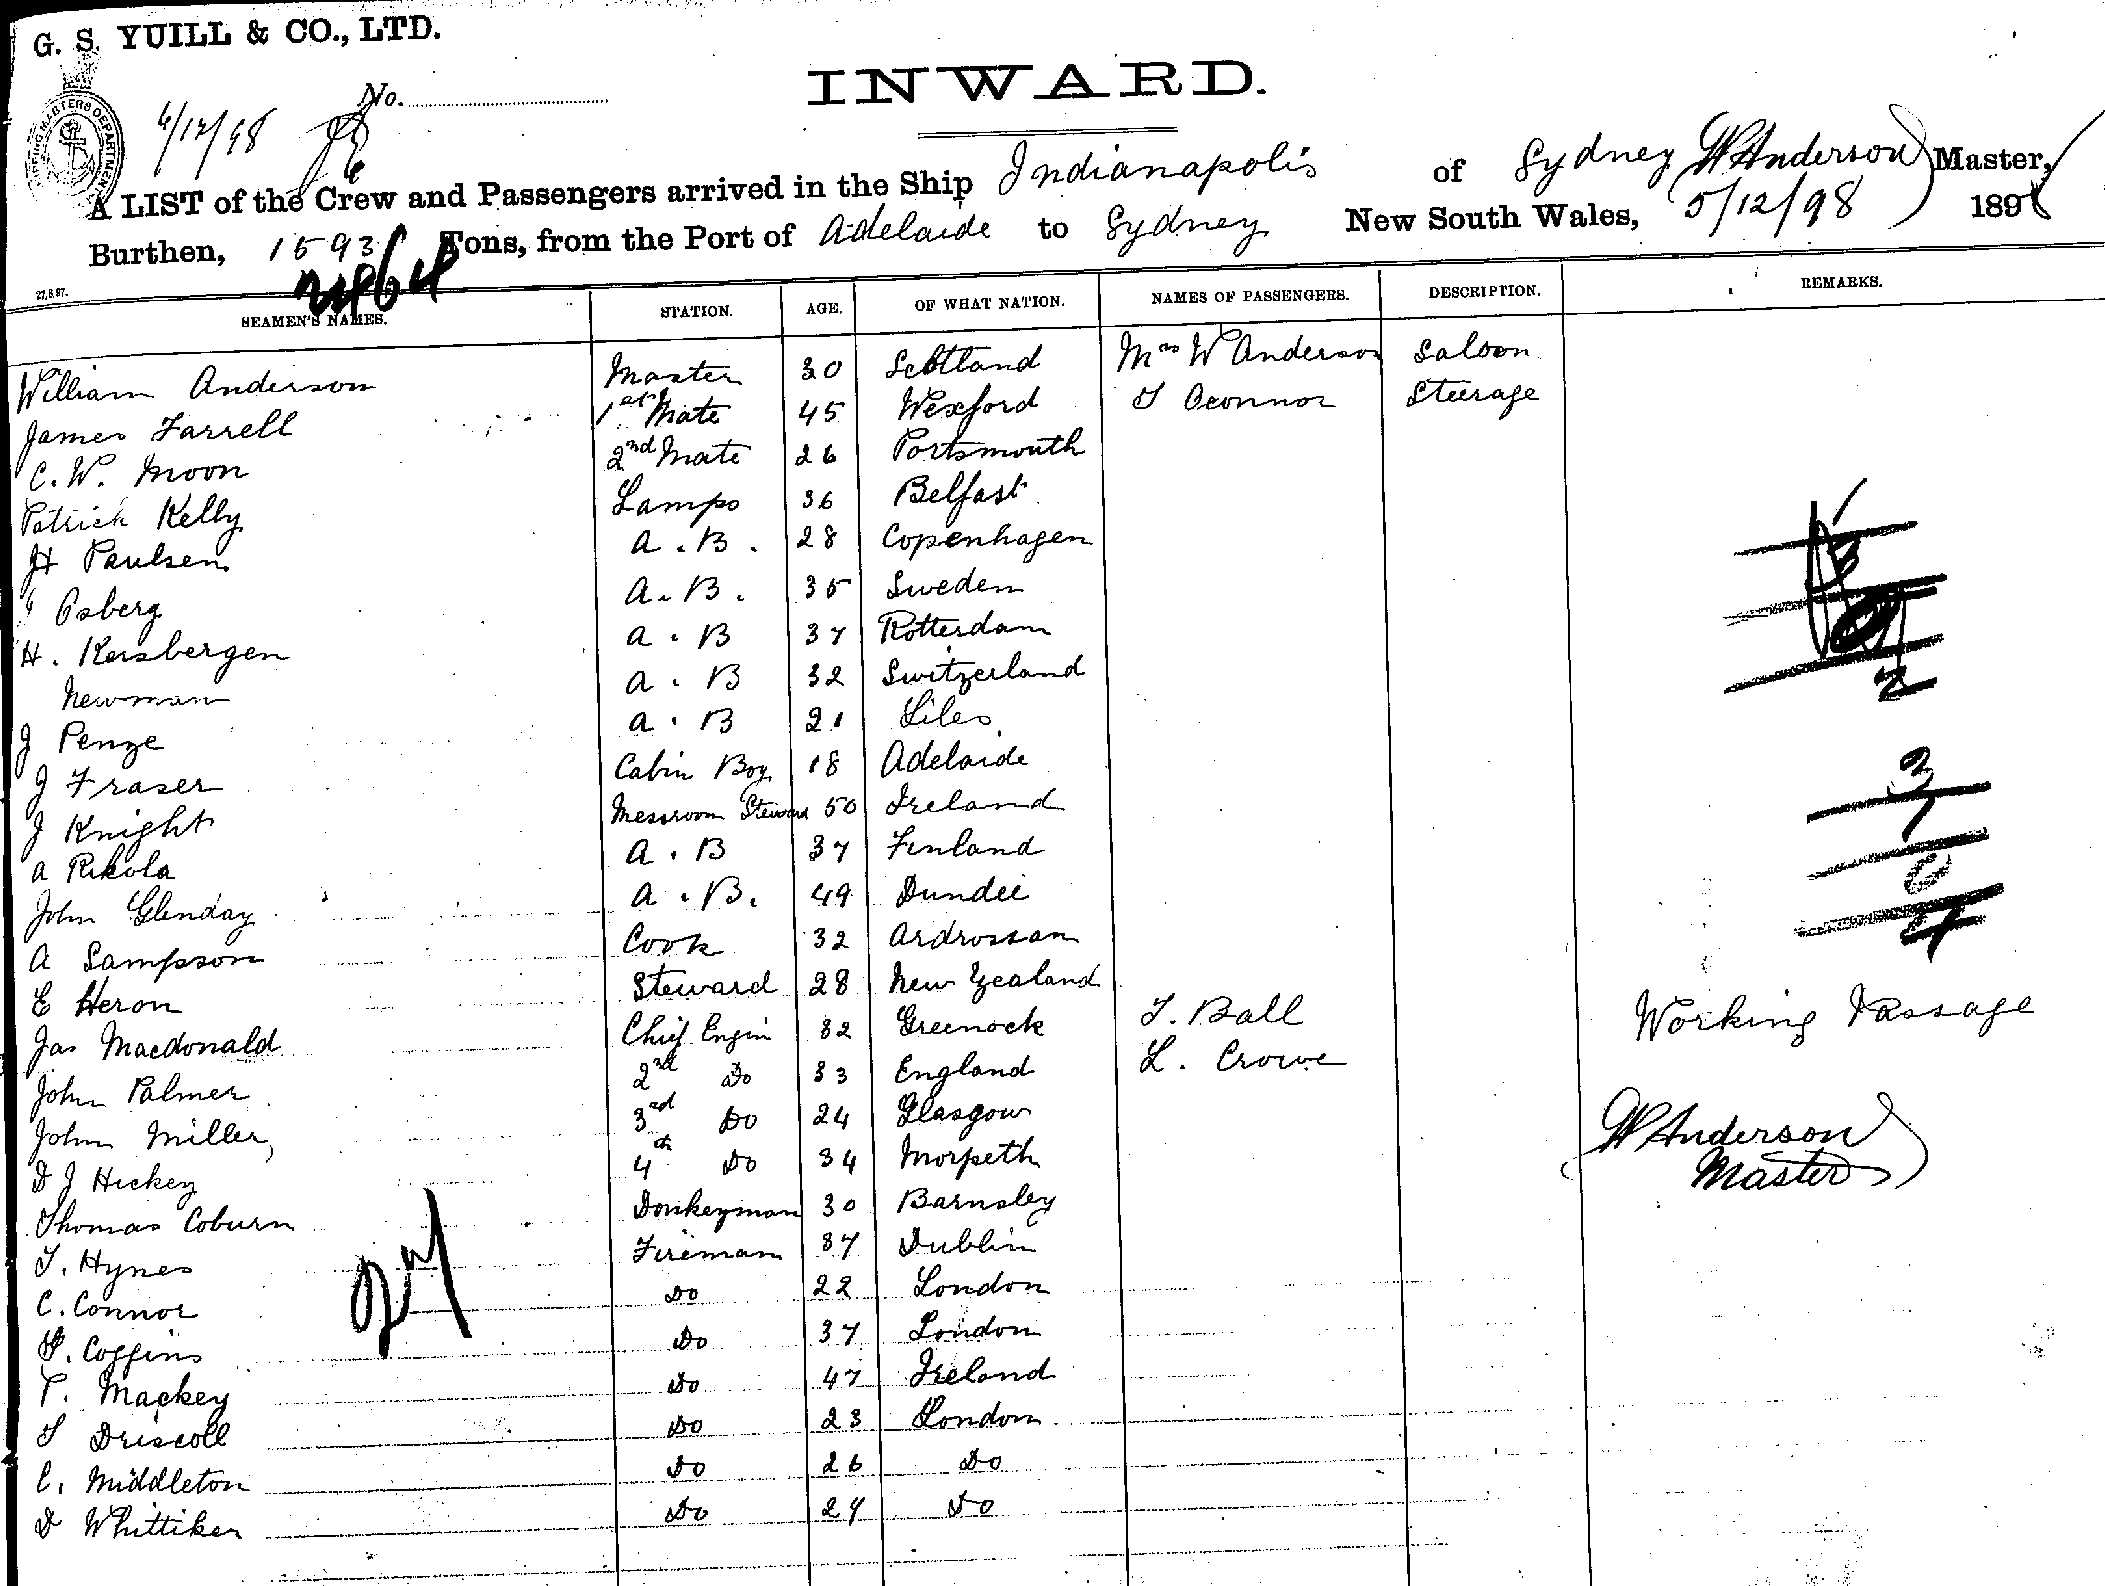 G. S. YUILL & CO., LTD.
No.
INWARD.
6/12/98
A LIST of the Crew and Passengers arrived in the Ship Indianapolis of Sydney W Anderson Master,
Burthen, 1593 Tons, from the Port of Adelaide to Sydney New South Wales, 5/12/98 189
2464
27.8.97.
SEAMEN'S NAMES. STATION. AGE. OF WHAT NATION. NAMES OF PASSENGERS. DESCRIPTION. REMARKS.
William Anderson Master 30 Scotland Mrs W Anderson Saloon
James Farrell 1st Mate 45 Wexford T Oconnor Steerage
C. W. Moon 2nd Mate 26 Portsmouth
Patrick Kelly Lamps 36 Belfast
H Paulsen A.B. 28 Copenhagen
Osberg A.B. 35 Sweden
H. Kersbergen A.B 37 Rotterdam
Newman A.B 32 Switzerland
J Penze A.B 21
J Fraser Cabin Boy 18 Adelaide
J Knight Messroom Steward 50 Ireland
A Rikola A.B 37 Finland
John Glenday A.B. 49 Dundee
A Sampson Cook 32 Ardrossan
E Heron Steward 28 New Zealand
Jas Macdonald Chief Engin 32 Greenock T. Ball Working Passage
John Palmer 2nd Do 33 England L. Crowe
John Miller 3rd Do 24 Glasgow W Anderson
D J Hickey 4th Do 34 Morpeth Master
Thomas Coburn Donkeyman 30 Barnsley
T. Hynes Fireman 37 Dublin
C. Connor Do 22 London
P. Coggins Do 37 London
T. Mackey Do 47 Ireland
T Driscoll Do 23 London
C. Middleton Do 26 Do
D Whittiker Do 27 Do
27